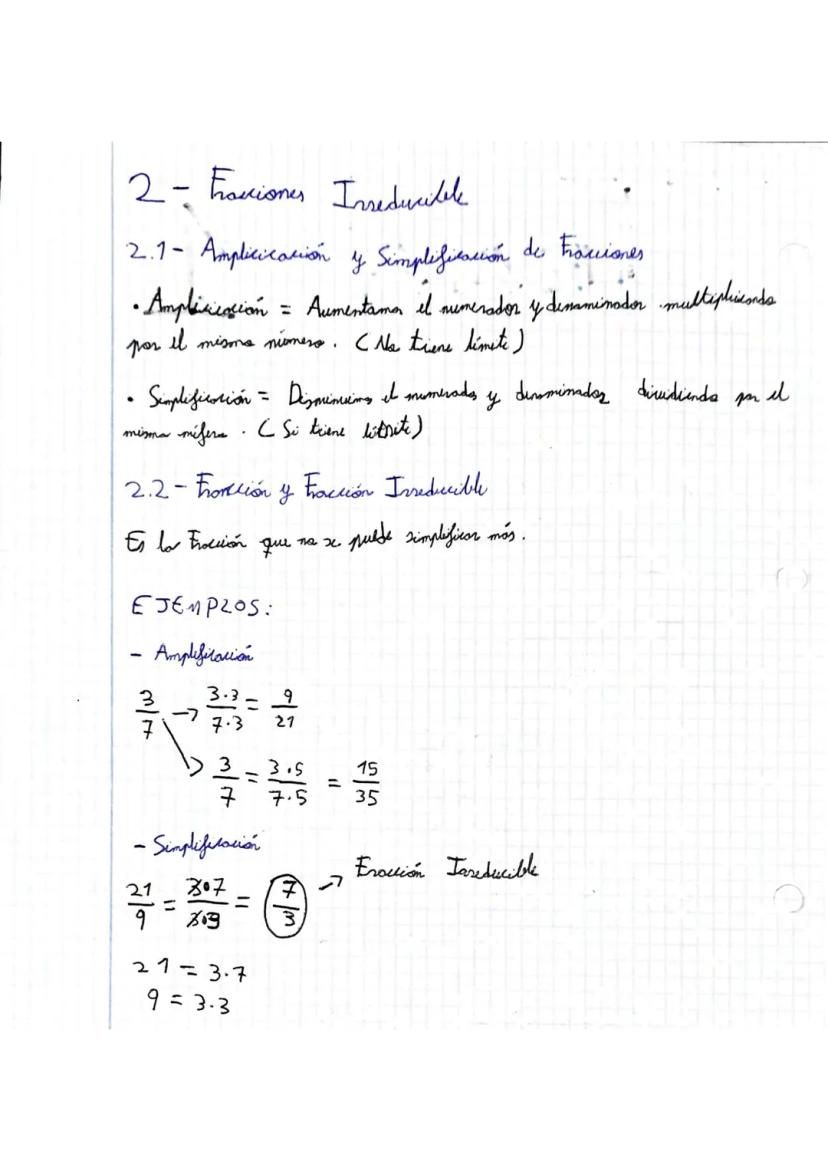 2 - Fracciones Irreducible
2.1 - Amplicicación y Simplificación de Fracciones
• Amplicicación = Aumentamos el numerador y denominador multiplicando
por el mismo número. (No tiene límite)
• Simplificación = Disminuimos el numerador y denominador dividiendo por el
mismo número. (Si tiene límite)
2.2 - Fracción y Fracción Irreducible
Es la Fracción que no se puede simplificar más.
EJEMPLOS:
- Amplificación
3/7 → 3·3/7·3 = 9/21
→ 3/7 = 3·5/7·5 = 15/35
- Simplificación
21/9 = 3·7/3·3 = 7/3 → Fracción Irreducible
21 = 3·7
9 = 3·3